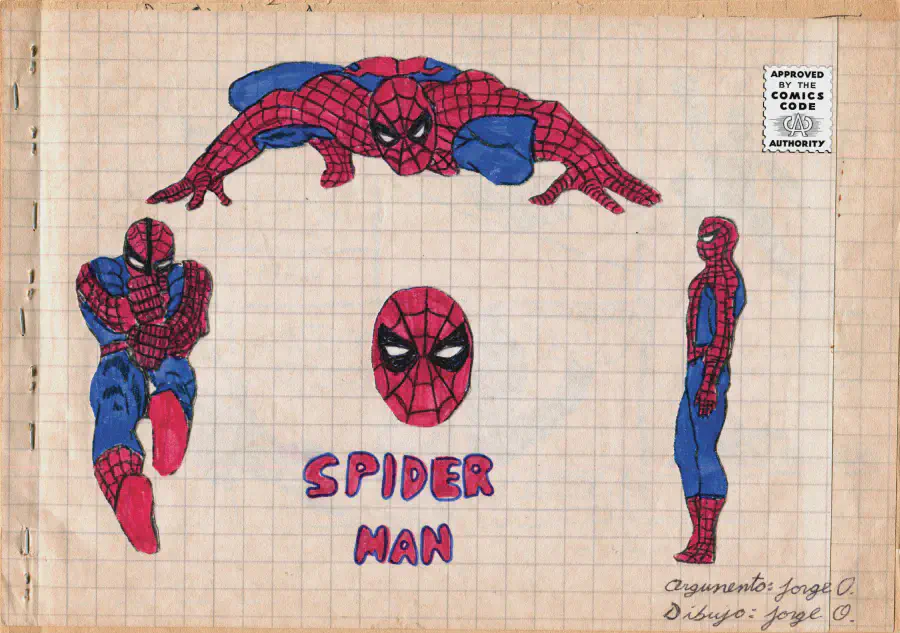 APPROVED
BY THE
COMICS
CODE
CA
AUTHORITY
SPIDER
MAN
Argumento: Jorge O.
Dibujo: Jorge O.